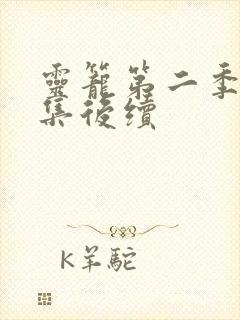 靈籠第二季
集後續
K羊駝